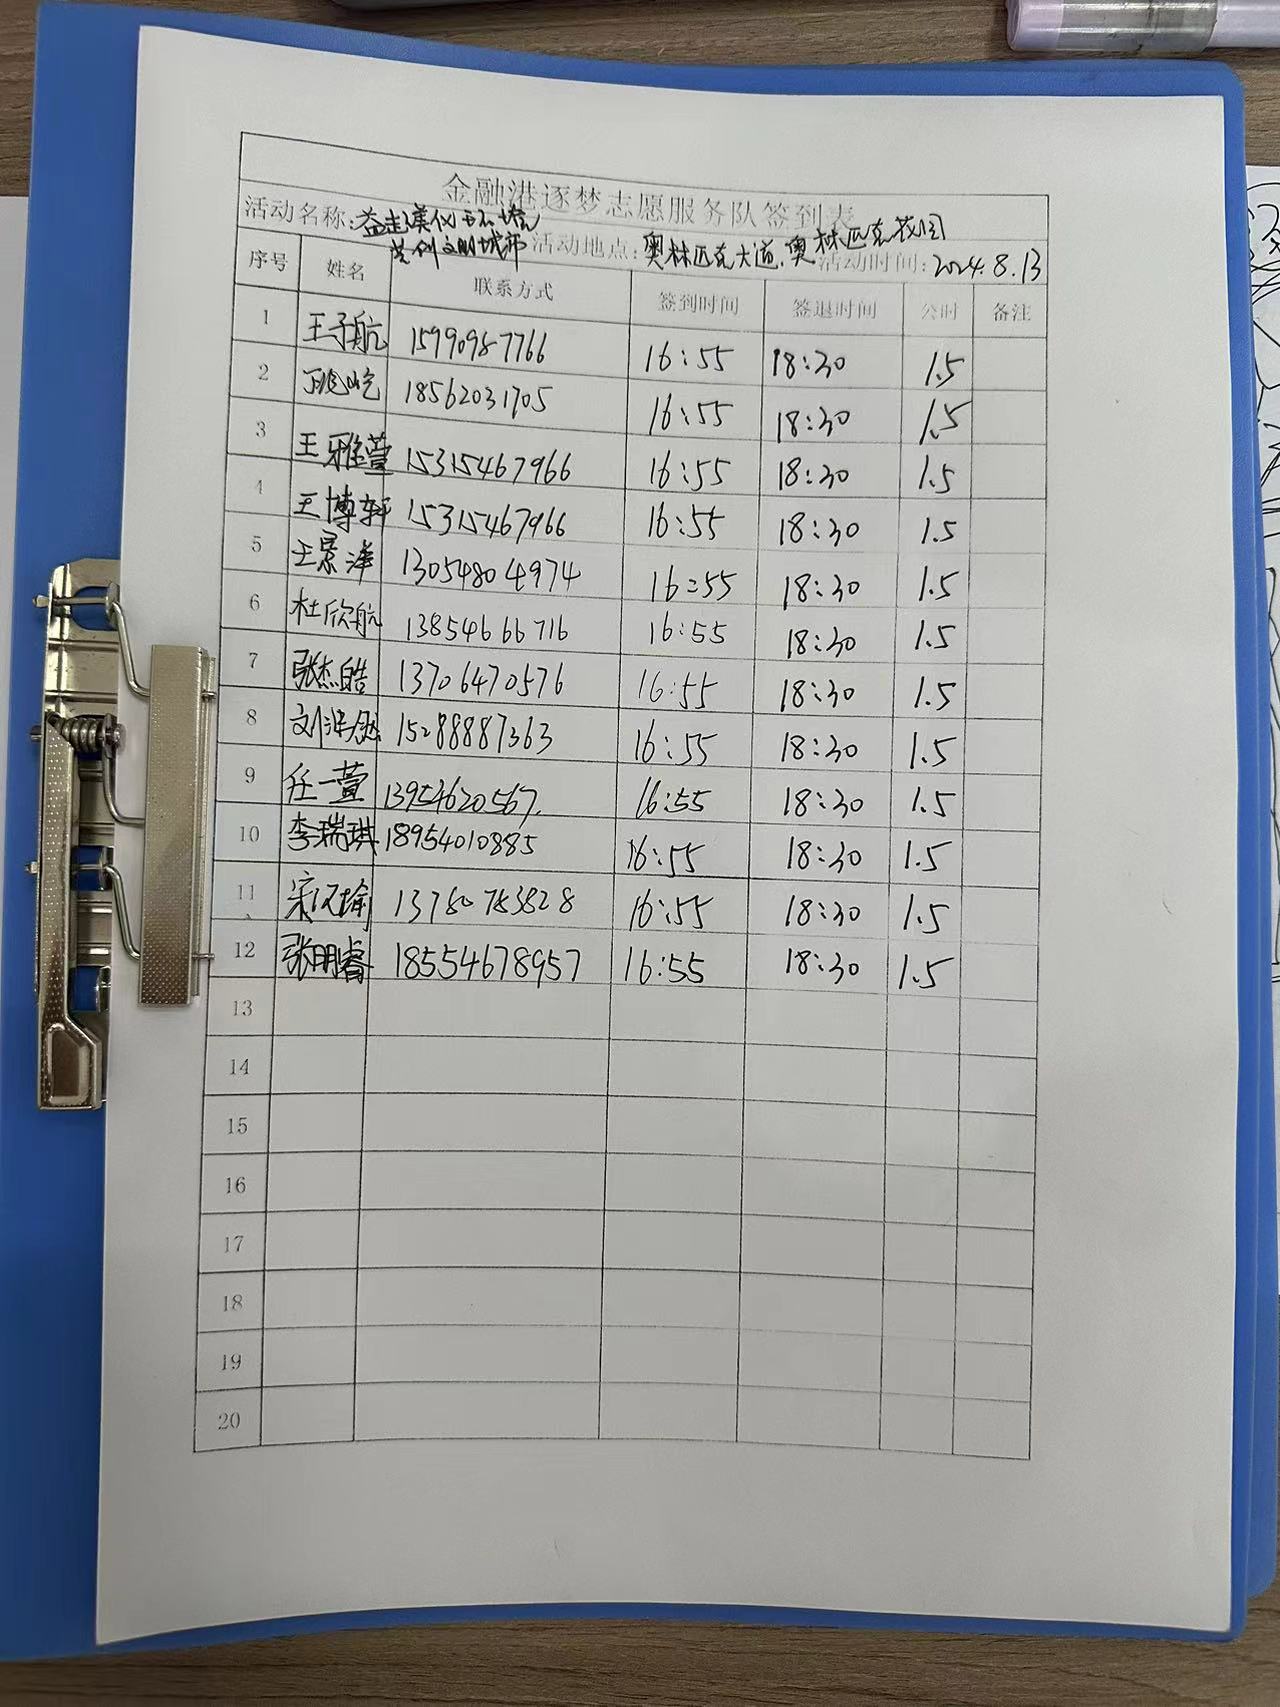 金融港逐梦志愿服务队签到表
活动名称: 益起 环境 共创文明城市 活动地点: 奥林匹克大道、奥林匹克花园 活动时间: 2024.8.13
序号 姓名 联系方式 签到时间 签退时间 公时 备注
1 王子航 15990987766 16:55 18:30 1.5
2 18562031705 16:55 18:30 1.5
3 王雅萱 15315467966 16:55 18:30 1.5
4 王博轩 15315467966 16:55 18:30 1.5
5 王景泽 13054804974 16:55 18:30 1.5
6 杜欣航 13854666716 16:55 18:30 1.5
7 张杰皓 13706470576 16:55 18:30 1.5
8 刘 15288887363 16:55 18:30 1.5
9 任一萱 13954620567. 16:55 18:30 1.5
10 李瑞琪 18954010885 16:55 18:30 1.5
11 宋汉瑜 13780783828 16:55 18:30 1.5
12 张明睿 18554678957 16:55 18:30 1.5
13
14
15
16
17
18
19
20